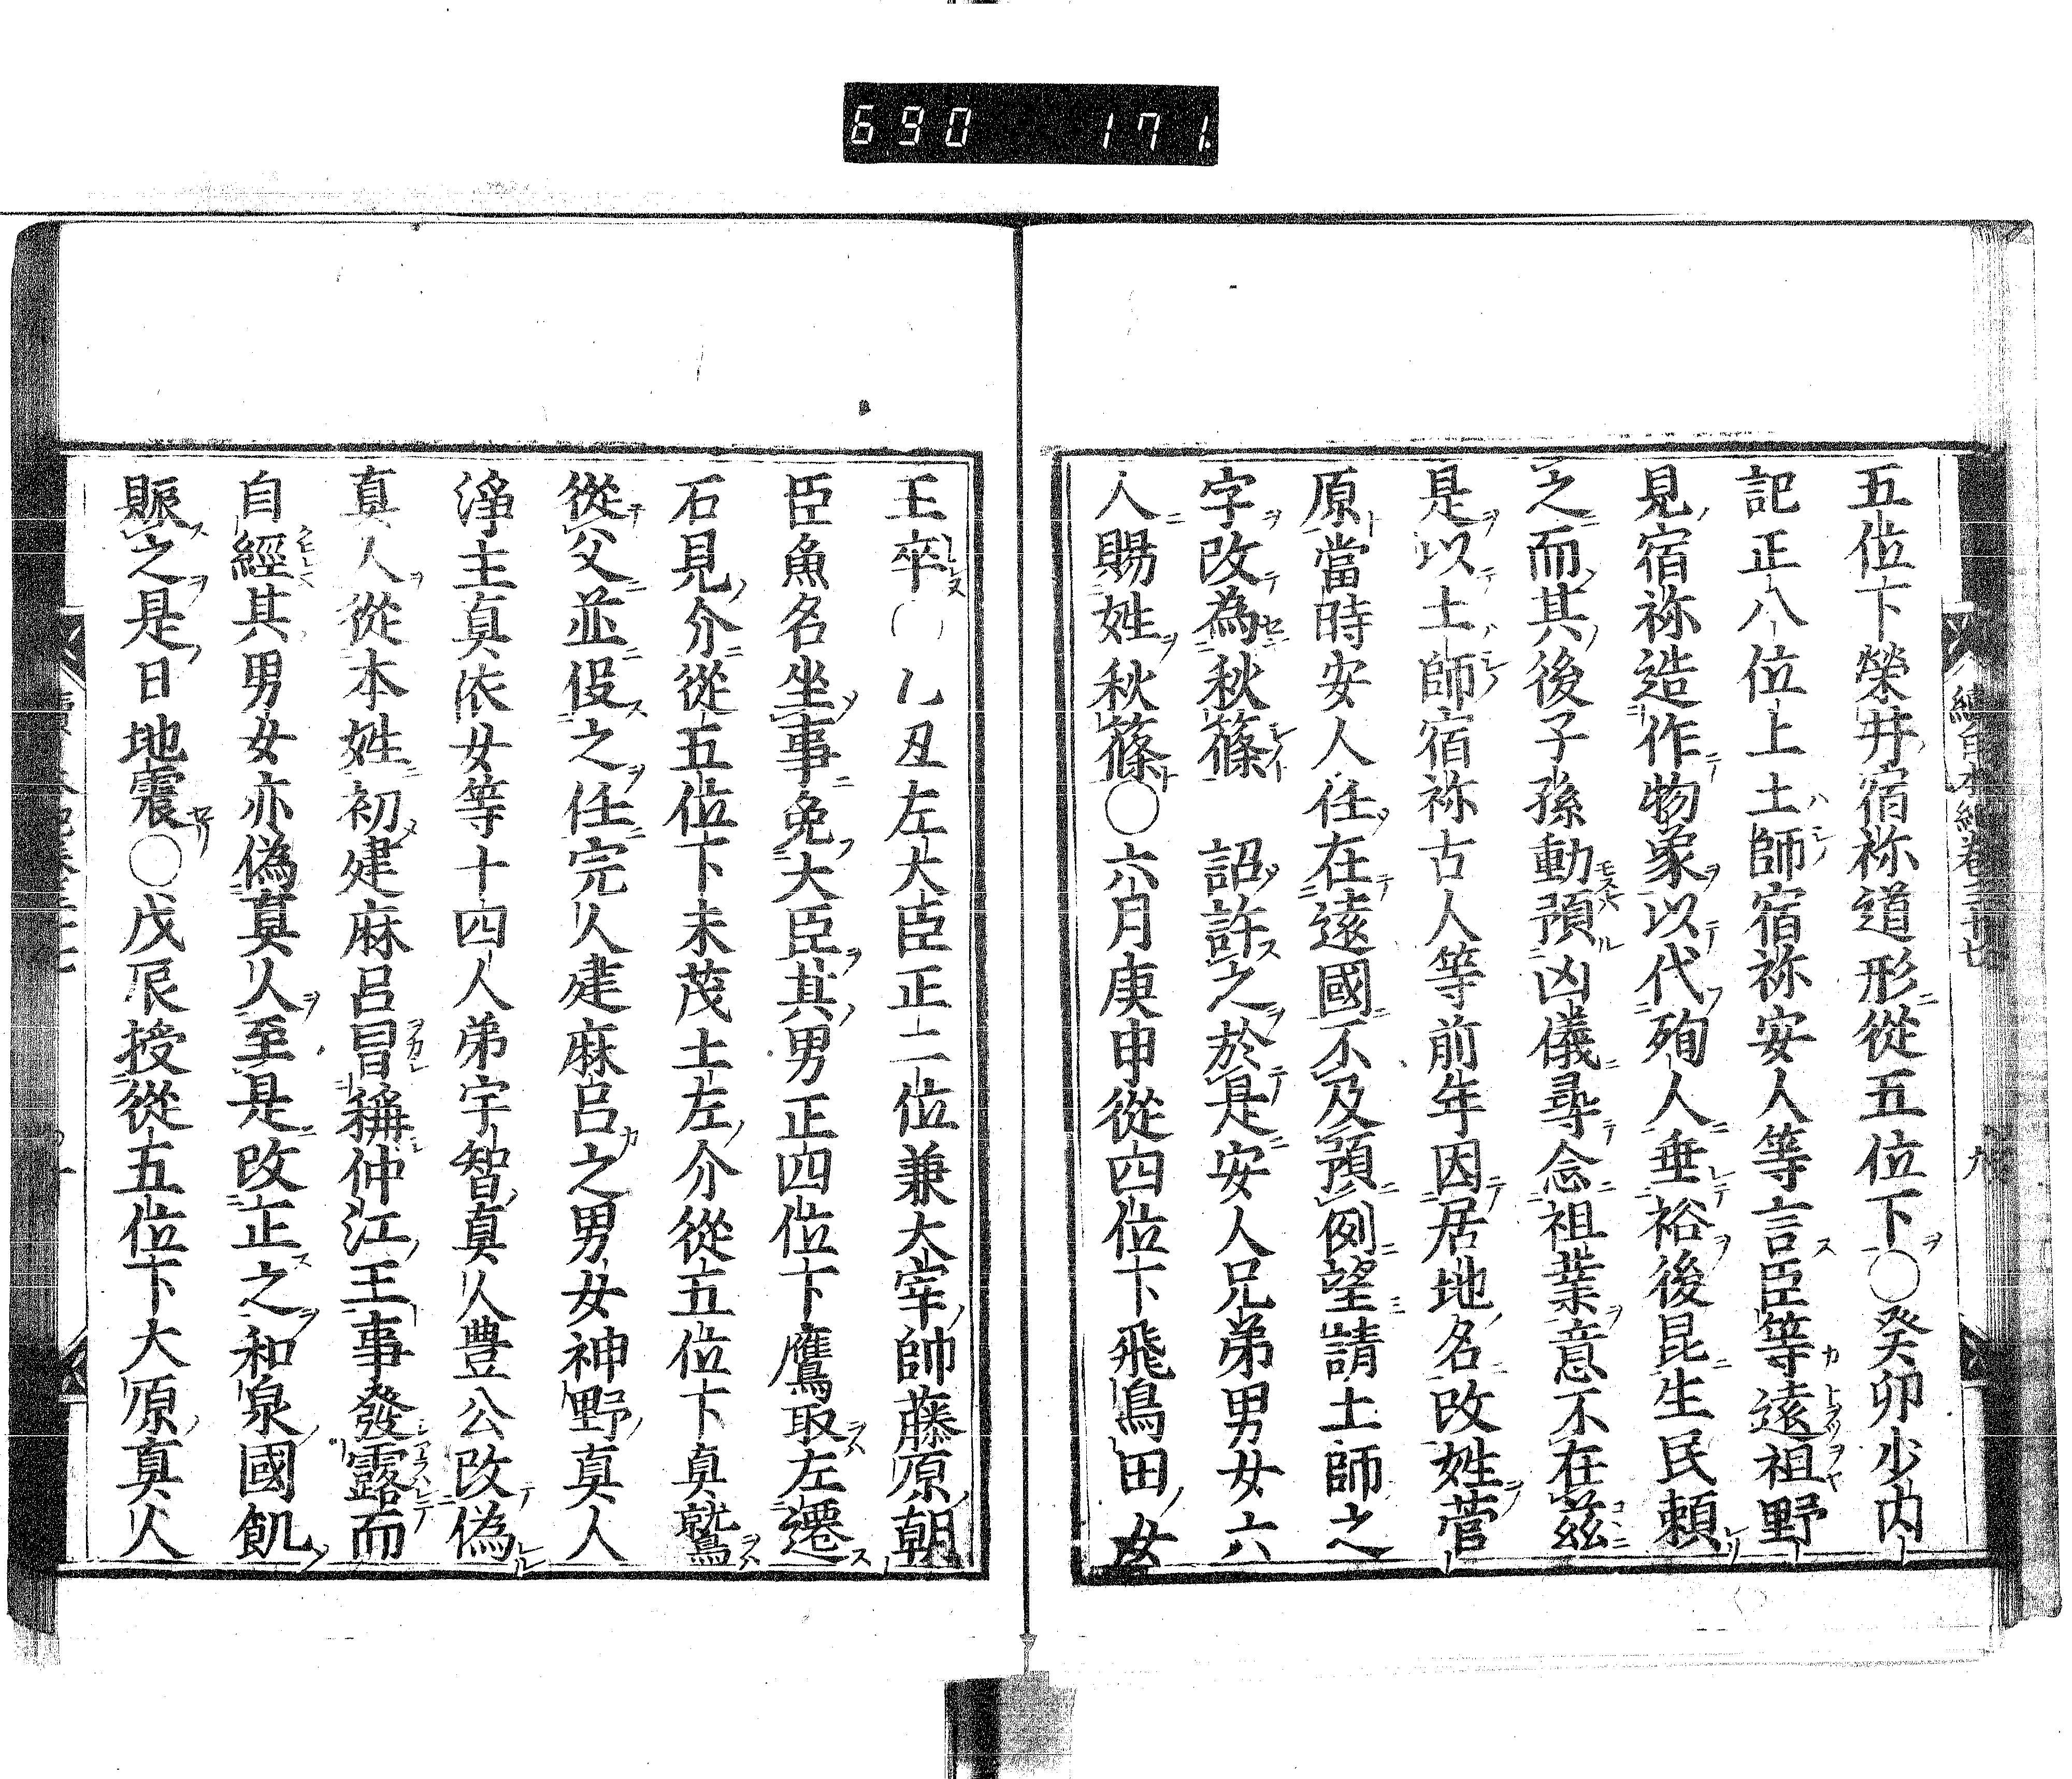 690 171
續日本紀卷三十七 九
五位下榮井宿祢道形從五位下○癸卯少內
記正八位上土師宿祢安人等言臣等遠祖野
見宿祢造作物象以代殉人垂裕後昆生民賴
之而其後子孫動預凶儀尋念祖業意不在茲
是以土師宿祢古人等前年因居地名改姓菅
原當時安人任在遠國不及預例望請土師之
字改為秋篠 詔許之於是安人兄弟男女六
人賜姓秋篠○六月庚申從四位下飛鳥田女
王卒○乙丑左大臣正二位兼大宰帥藤原朝
臣魚名坐事免大臣其男正四位下鷹取左遷
石見介從五位下末茂土左介從五位下真鷲
從父並促之任完人建麻呂之男女神野真人
淨主真依女等十四人弟宇智真人豊公改偽
真人從本姓初建麻呂冒稱仲江王事發露而
自經其男女亦偽真人至是改正之和泉國飢
賑之是日地震○戊辰授從五位下大原真人